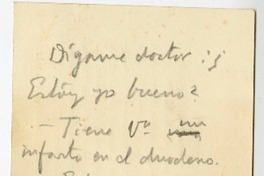 Dígame doctor: ¿
Estoy yo bueno?
— Tiene Vᵈ un
infarto en el duodeno.